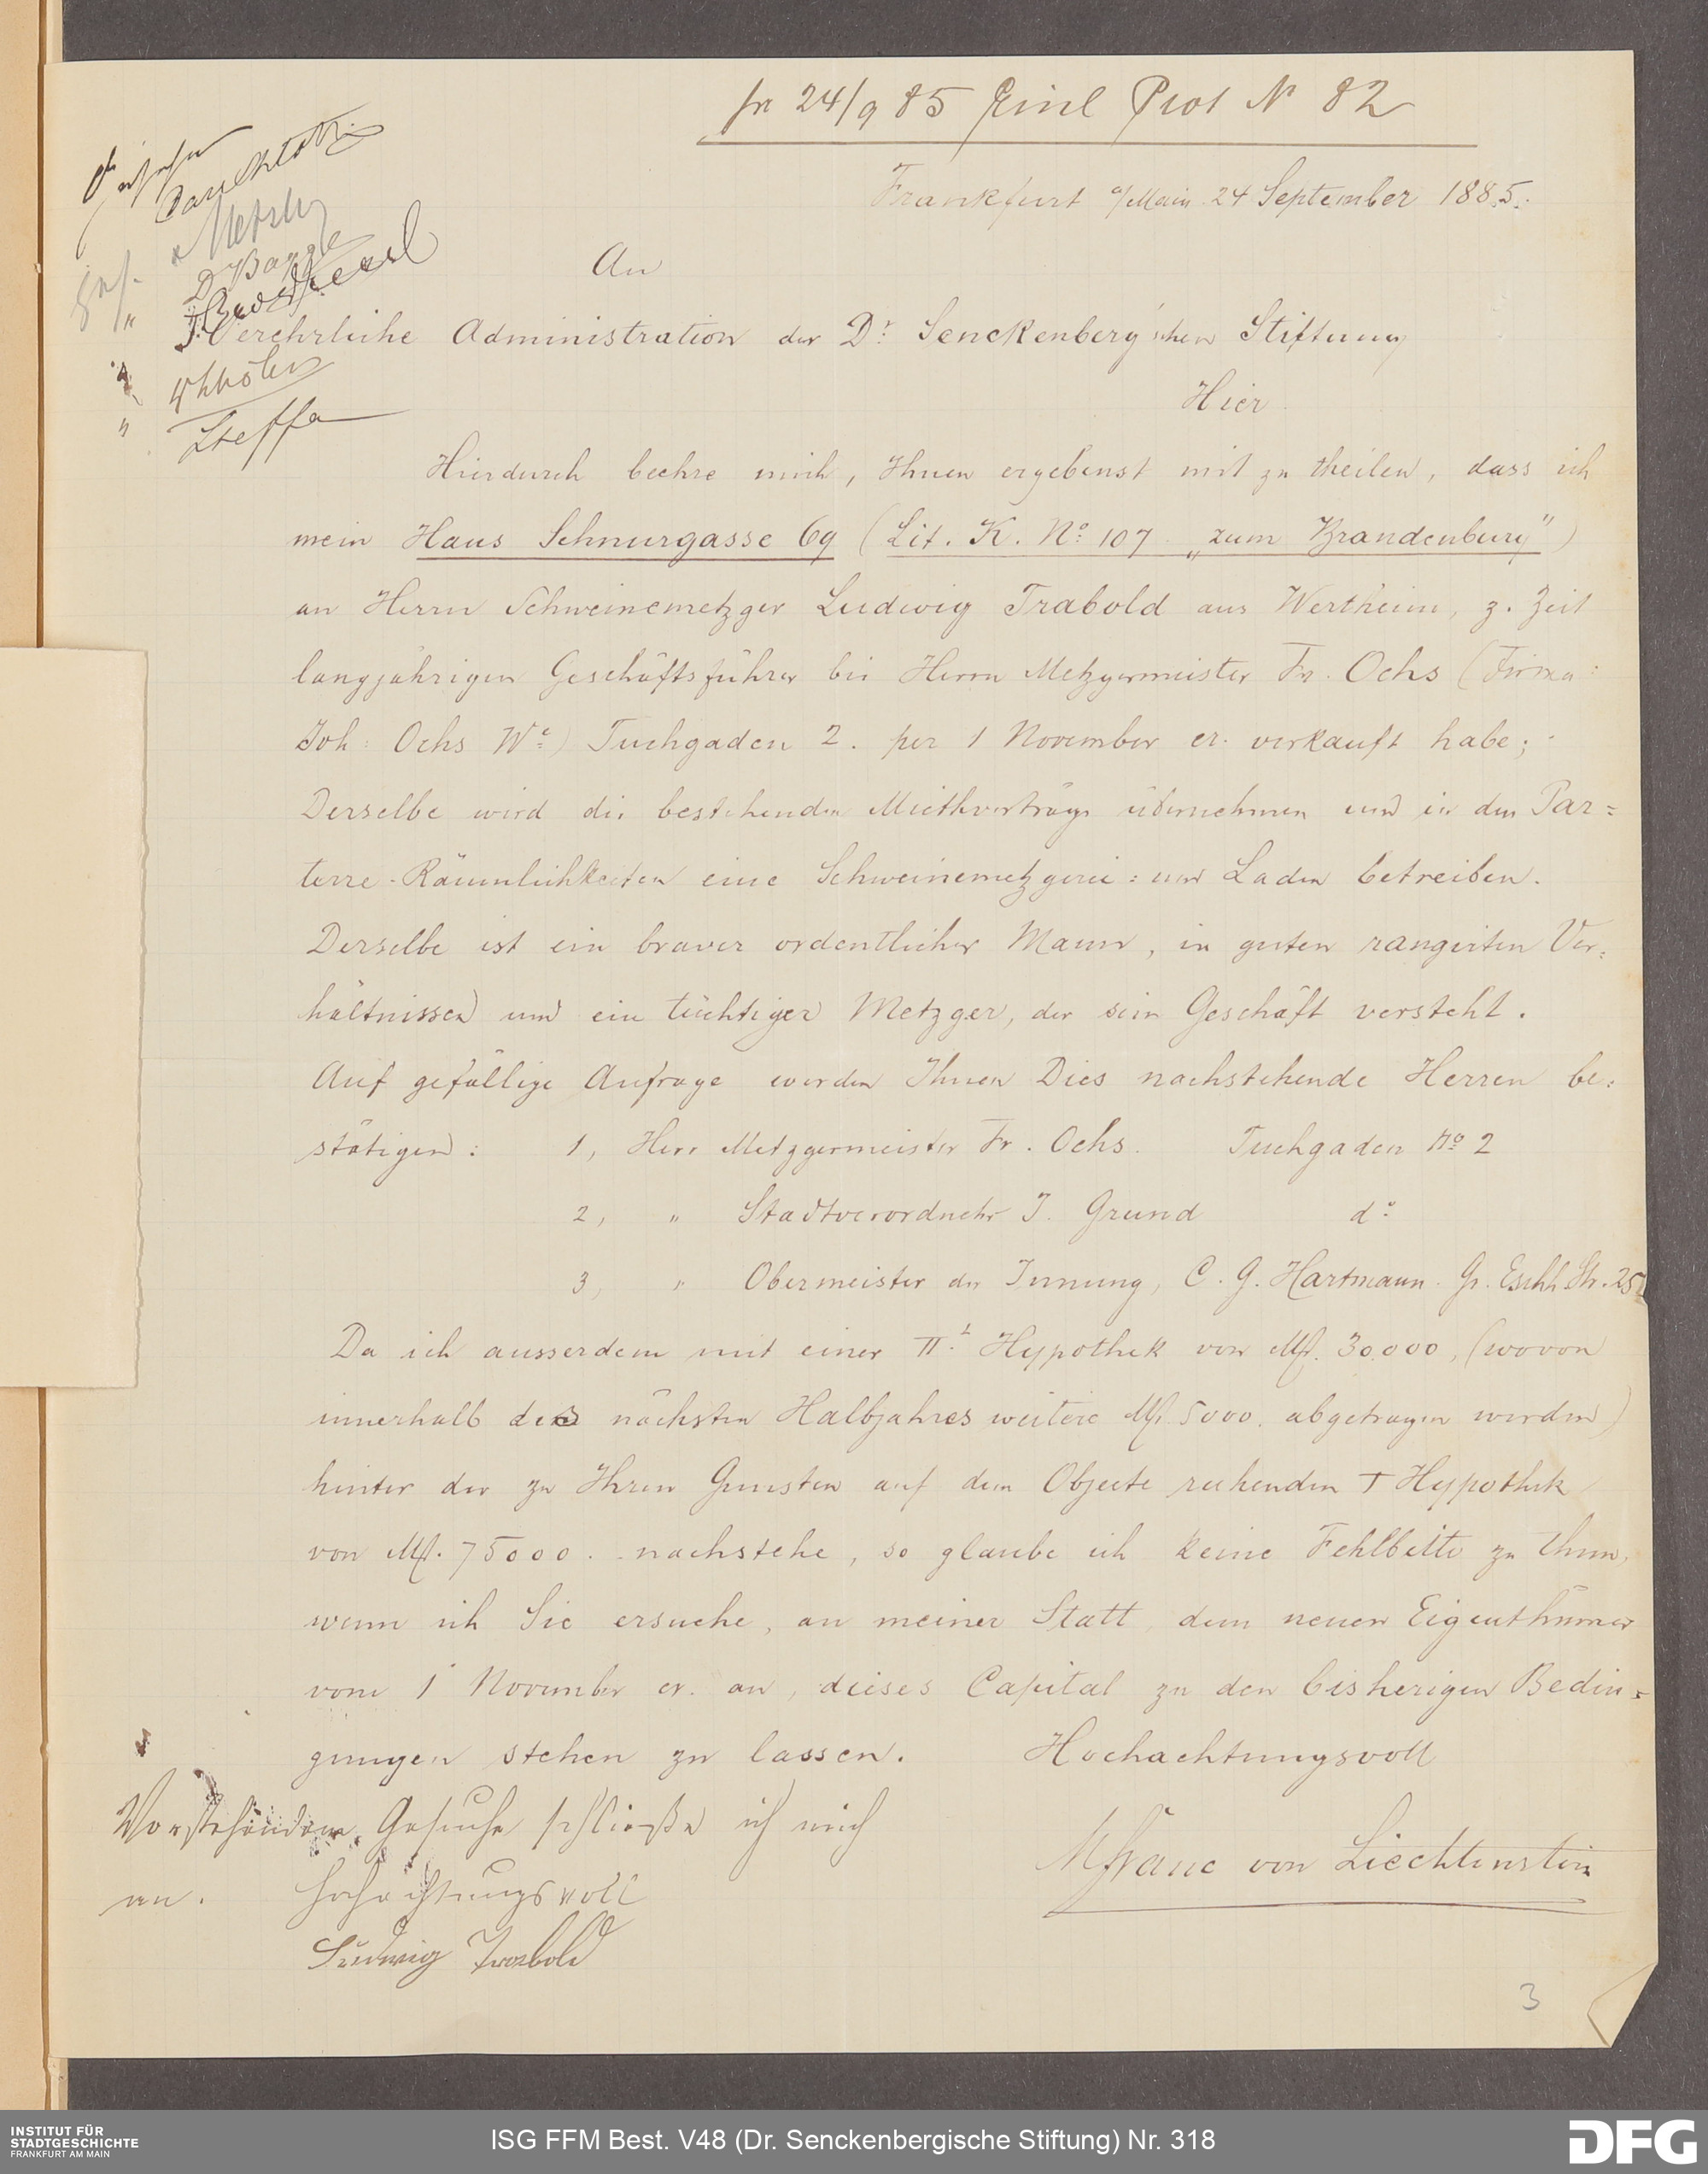 pr 24/9 85 Einl Prot N 82
Frankfurt a/Main 24 September 1885.
An
Verehrliche Administration der Dr. Senckenberg'schen Stiftung
Hier
Metzler
Steffa
Hierdurch beehre mich, Ihnen ergebenst mit zu theilen, dass ich
mein Haus Schnurgasse 69 (Lit. K. No. 107 „zum Brandenburg")
an Herrn Schweinemetzger Ludwig Trabold aus Wertheim, z. Zeit
langjährigen Geschäftsführer bei Herrn Metzgermeister Fr. Ochs (Firma:
Joh: Ochs We.) Tuchgaden 2. per 1 November cr. verkauft habe;
Derselbe wird die bestehenden Miethverträge übernehmen und in den Par=
terre-Räumlichkeiten eine Schweinemetzgerei= und Laden betreiben.
Derselbe ist ein braver ordentlicher Mann, in guten rangirten Ver=
hältnissen und ein tüchtiger Metzger, der sein Geschäft versteht.
Auf gefällige Anfrage werden Ihnen Dies nachstehende Herren be=
stätigen: 1, Herr Metzgermeister Fr. Ochs. Tuchgaden No 2
2, " Stadtverordneter J. Grund do
3, " Obermeister der Innung, C. G. Hartmann. Gr. Eschh. Str. 25
Da ich ausserdem mit einer II. Hypothek von M. 30.000, (wovon
innerhalb des nächsten Halbjahres weitere M. 5000. abgetragen werden)
hinter der zu Ihren Gunsten auf dem Objecte ruhenden I Hypothek
von M. 75000. nachstehe, so glaube ich keine Fehlbitte zu thun,
wenn ich Sie ersuche, an meiner Statt dem neuen Eigenthümer
vom 1 November cr. an, dieses Capital zu den bisherigen Bedin=
gungen stehen zu lassen. Hochachtungsvoll
von Liechtenstein
Vorstehendem Gesuche schließe ich mich
an. Hochachtungsvoll
Ludwig Trabold
3
INSTITUT FÜR
STADTGESCHICHTE
FRANKFURT AM MAIN
ISG FFM Best. V48 (Dr. Senckenbergische Stiftung) Nr. 318
DFG